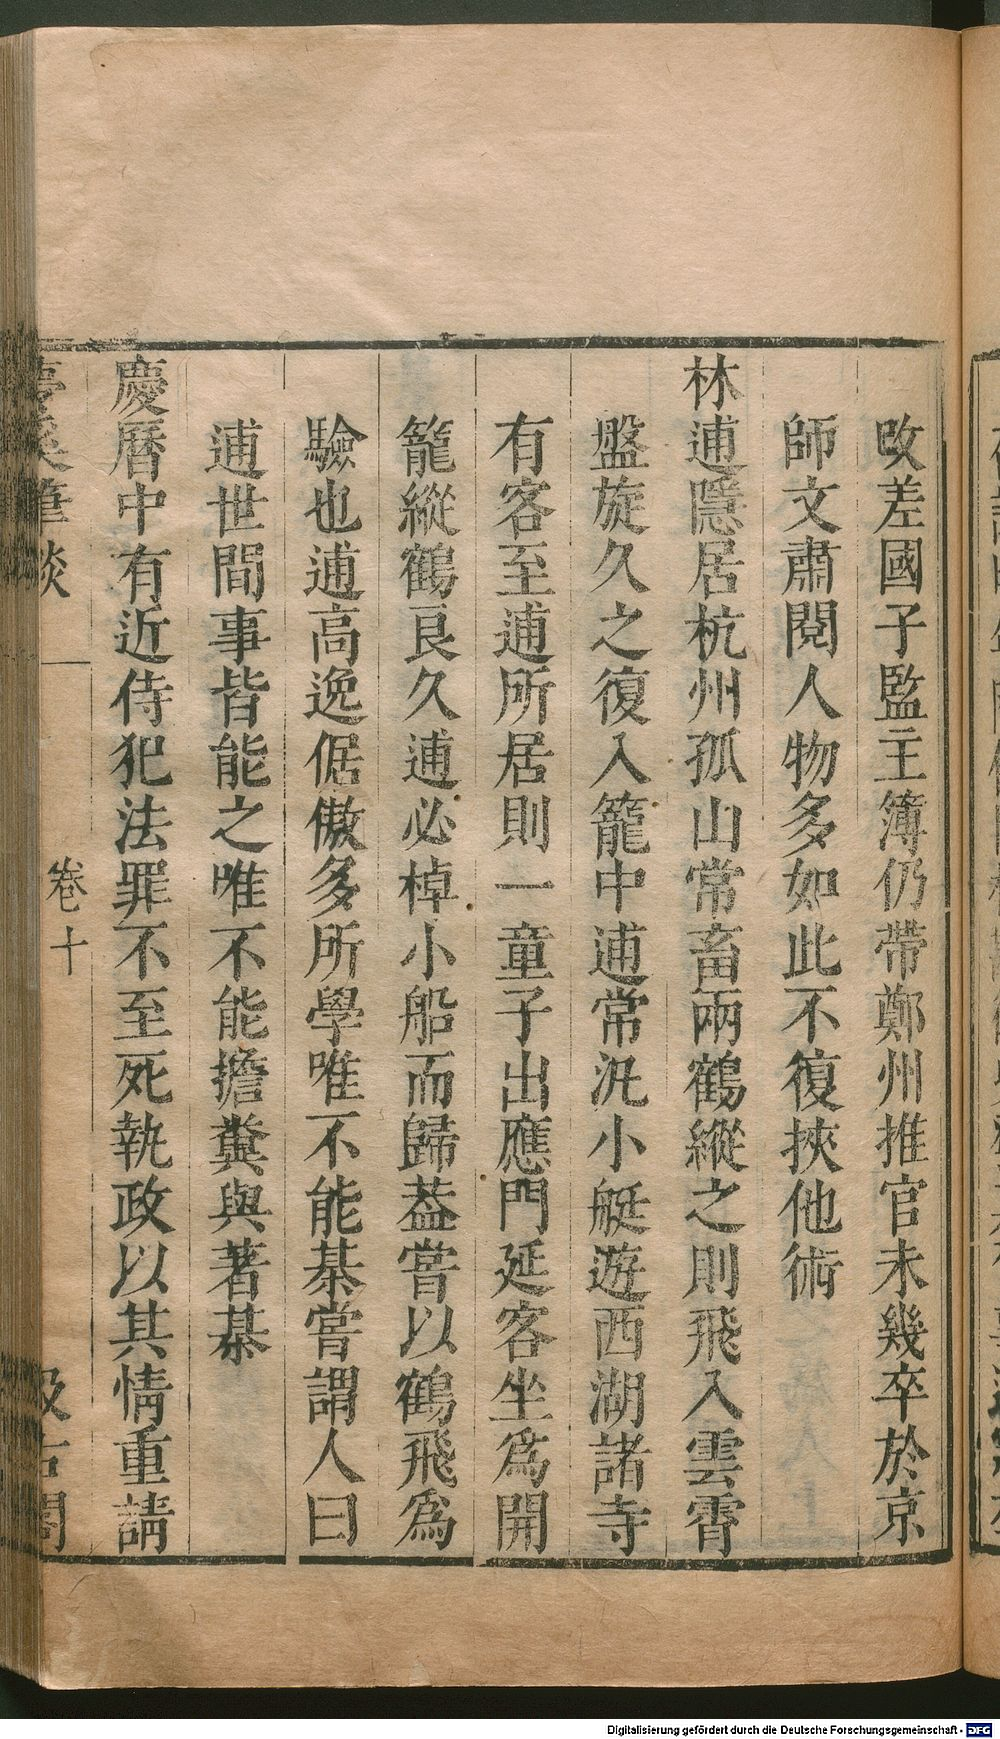 攺差國子監主簿仍帶鄭州推官未幾卒於京
師文肅閱人物多如此不復挾他術
林逋隱居杭州孤山常畜兩鶴縱之則飛入雲霄
盤旋久之復入籠中逋常汎小艇遊西湖諸寺
有客至逋所居則一童子出應門延客坐爲開
籠縱鶴良久逋必棹小船而歸葢嘗以鶴飛爲
驗也逋高逸倨傲多所學唯不能棊嘗謂人曰
逋世間事皆能之唯不能擔糞與著棊
慶曆中有近侍犯法罪不至死執政以其情重請
夢溪筆談 卷十 汲古閣
Digitalisierung gefördert durch die Deutsche Forschungsgemeinschaft - DFG